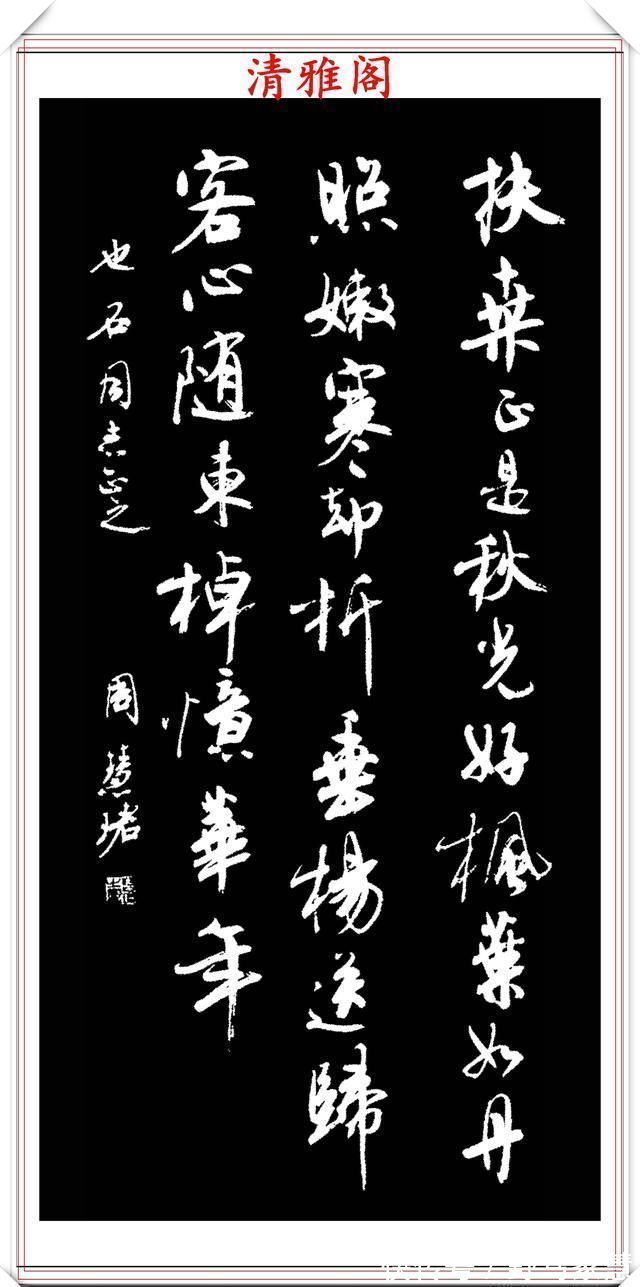 清雅阁
扶桑正是秋光好枫葉如丹
照嫩寒却折垂楊送歸
客心随東棹憶華年
也石同志正之
周慧珺